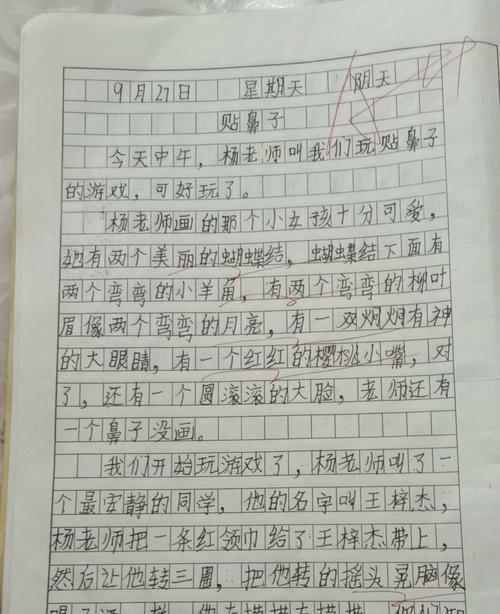 9月27日 星期天 阴天
贴鼻子
今天中午，杨老师叫我们玩贴鼻子
的游戏，可好玩了。
杨老师画的那个小女孩十分可爱，
她有两个美丽的蝴蝶结，蝴蝶结下面有
两个弯弯的小羊角，有两个弯弯的柳叶
眉像两个弯弯的月亮，有一双炯炯有神
的大眼睛，有一个红红的樱桃小嘴，对
了，还有一个圆滚滚的大脸，老师还有
一个鼻子没画。
我们开始玩游戏了，杨老师叫了一
个最安静的同学，他的名字叫王梓杰，
杨老师把一条红领巾给了王梓杰带上，
然后让他转三圈，把他转的摇头晃脑像